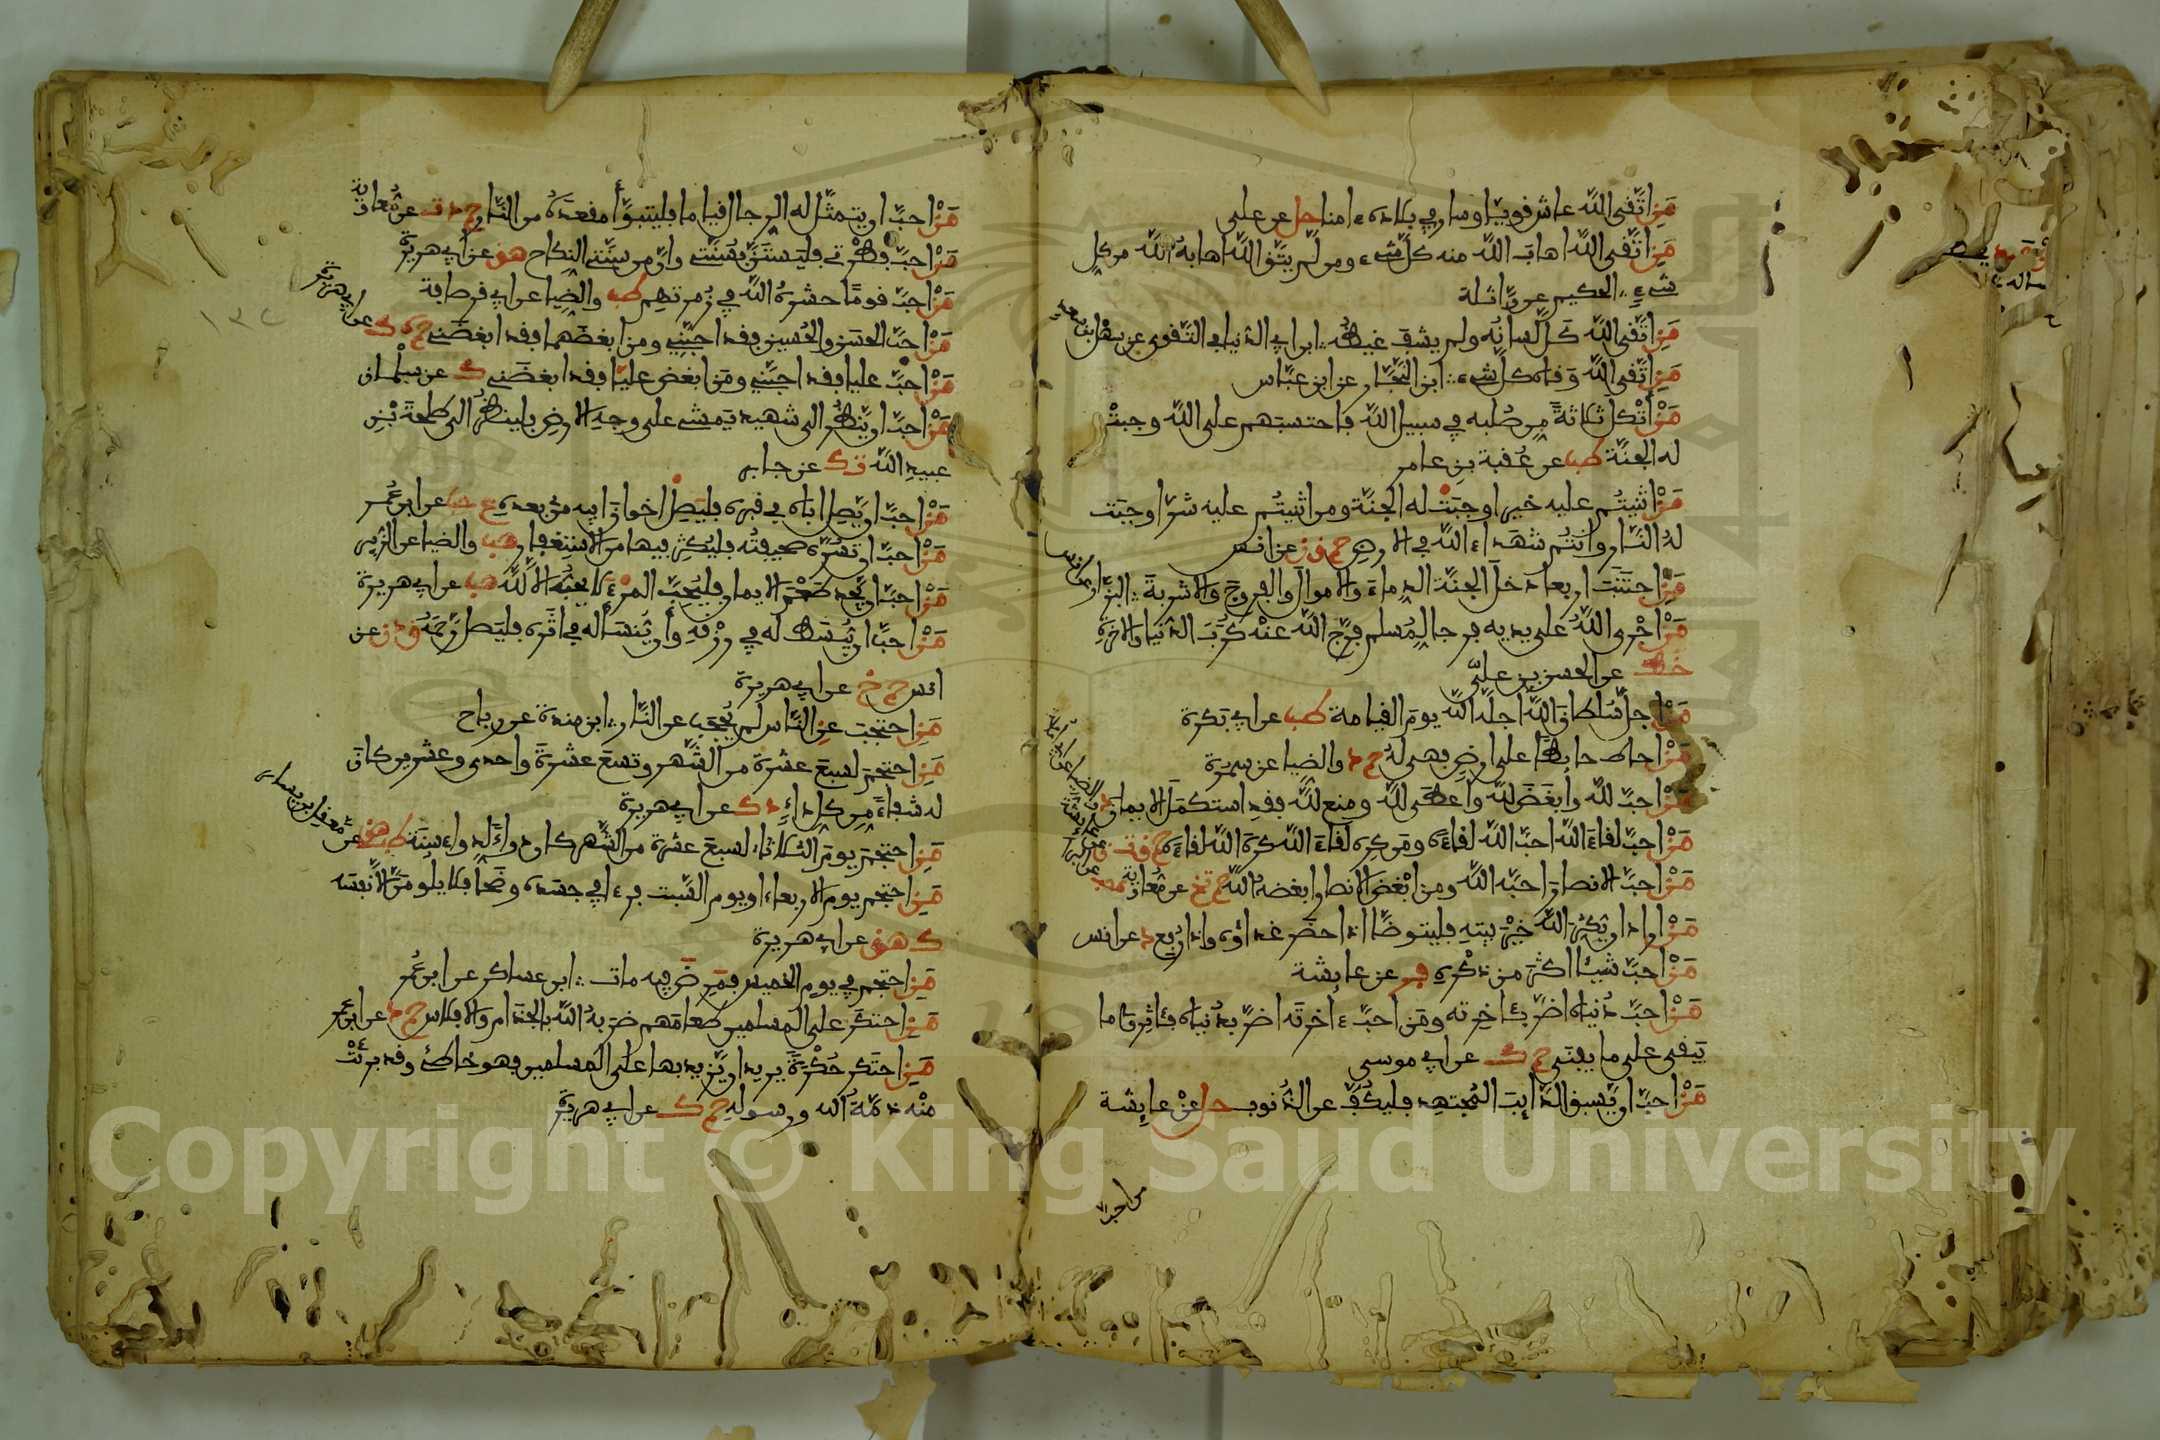 مَنِ اتَّقى اللَّه عاش قويّا وسار في بلاده ءامنا حل عن علي
مَنِ اتَّقى اللَّه اهابَ اللَّه منه كل شيء ومن لم يتّق اللَّه اهابه اللَّه من كل
شيءٍ الحكيم عن واثلة
مَنِ اتَّقى اللَّه كَلَّ لسانُه ولم يشفِ غيظه ابن ابي الدنيا في التَّقوى عن سهل بن سعد
مَنِ اتَّقى اللَّه وَقاه كل شيء ابن النجّار عن ابن عبّاس
مَنْ أثْكل ثلاثةً من صُلبه في سبيل اللَّه فاحتسبَهم على اللَّه وجبتْ
له الجنّة طب عن عُقبة بنِ عامر
مَنْ اثنيتُم عليه خيرا وجبَتْ له الجنّة ومن اثنيتُم عليه شرّا وجبَت
لهُ النّار وانتُم شهَداء اللَّه في الارضِ حم ق ن عن انس
مَنِ اجتَنَبَ اربعا دخل الجنّة الدماءَ والاموالَ والفروجَ والاشربةَ البزار عن انس
مَنْ اجْرى اللَّهُ على يديه فرجا لِمُسلم فرّج اللَّه عنْه كُرَبَ الدّنيا والاخرةِ
خط عن الحسن بن عليّ
مَنْ اجلَّ سُلطانَ اللَّه اجلّه اللَّه يومَ القيامة طب عن ابي بَكرة
مَنْ احاط حائطا على ارضٍ فهى لهُ حم د والضيا عن سمرة
مَنْ احبّ للّه وأبغَضَ للّه وأعطى للّه ومنع للّه فقدِ استكمَل الايمانَ د
مَنْ احبّ لقاءَ اللَّه احبّ اللَّه لقاءَهُ ومَن كرِه لقاءَ اللَّه كرهَ اللَّه لقاءَهُ حم ق ت ن
مَنْ احبّ الانصارَ احبّه اللَّه ومن ابْغضَ الانصار ابغضه اللَّه حم تخ عن مُعاوية
مَنْ اراد ان يكثرَ اللَّه خيْرَ بيتهِ فليتوضّأ اذا حضَر غداؤه واذا رُفع ه عن انس
مَنْ احبّ شيئا اكثرَ من ذكْرِه فر عن عايشة
مَنْ احبّ دُنياه اضرّ بئاخِرته ومَن احبّ ءاخرتَه اضرّ بدُنياه فئاثِروا ما
يَبقى على ما يفنى حم ك عن ابي موسى
مَنْ احبّ ان يَسبق الدّائبَ المُجتهد فليكُفّ عن الذُّنوب حل عنْ عايشة
من احبّ
مَنْ احبّ ان يتمثّل له الرجال قياما فليتبوَّأْ مقعدَهُ من النّار حم د ت عن مُعاوية
مَنْ احبّ فطْرتي فليَستَنّ بسُنّتي وانّ من سنّتي النكاح هق عن ابي هريرة
مَنْ احبّ قومًا حشَرهُ اللَّه في زُمرتهم طب والضيا عن ابي قرصافة
مَنْ احبّ الحسَن والحُسين فقد احبّني ومن ابغضَهما فقد ابغضَني حم ه ك عن ابي هريرة
مَنْ احبّ عليا فقد احبّني ومَن ابغض عليّا فقد ابغضَني ك عن سلْمان
مَنْ احبّ ان يَنظُر الى شهيد يَمشي على وجهِ الارضِ فلينظُر الى طلحةَ بْنِ
عبيدِ اللَّه ت ك عن جابر
مَنْ احبّ ان يَصِل اباه في قبره فليَصِل اخوانَ ابيه من بعده ع حب عن ابن عُمر
مَنْ احبّ ان تسُرّه صحيفتُه فليُكثِر فيها من الاستغفار هب والضيا عن الزّبير
مَنْ احبّ ان يجد طعْمَ الايمان فليُحبّ المرْءَ لا يحبُّه الّا للّه هب عن ابي هريرة
مَنْ احبّ ان يُبسَط له في رزْقهِ وأن يُنسَأ له في أثَره فليَصلْ رحمَهُ ق د ن عن
انس حم خ عن ابي هريرة
مَنِ احتجبَ عن النّاس لم يُحْجَب عن النّار ابن مندة عن رباح
مَنِ احتجمَ لسبعَ عشرة من الشّهر وتسعَ عشرةَ واحدى وعشرين كانَ
له شفاءً من كل داءٍ د ك عن ابي هريرة
مَنِ احتجمَ يومَ الثلاثاء لسبعَ عشرة من الشّهر كان دواءً لداءِ سنةٍ طب هق عن معقل بن يسار
مَنِ احتجم يومَ الاربعاء او يوم السّبت فرءا في جسَده وضَحا فلا يلومنّ الّا نفسَه
ك هق عن ابي هَريرة
مَنِ احتجم في يوم الخميس فمَرِضَ فيه مات ابن عساكر عن ابن عُمر
مَنِ احتكَر على المسلمين طعامَهم ضرَبهُ اللَّه بالجُذامِ والافلاس حم ه عن ابن عُمر
مَنِ احتَكر حُكْرَةً يريد ان يُغليَ بها على المسلمين فهو خاطئ وقد برئتْ
منْه ذمّةُ اللّه ورسوله حم ك عن ابي هريرة
١٣٢
Copyright © King Saud University